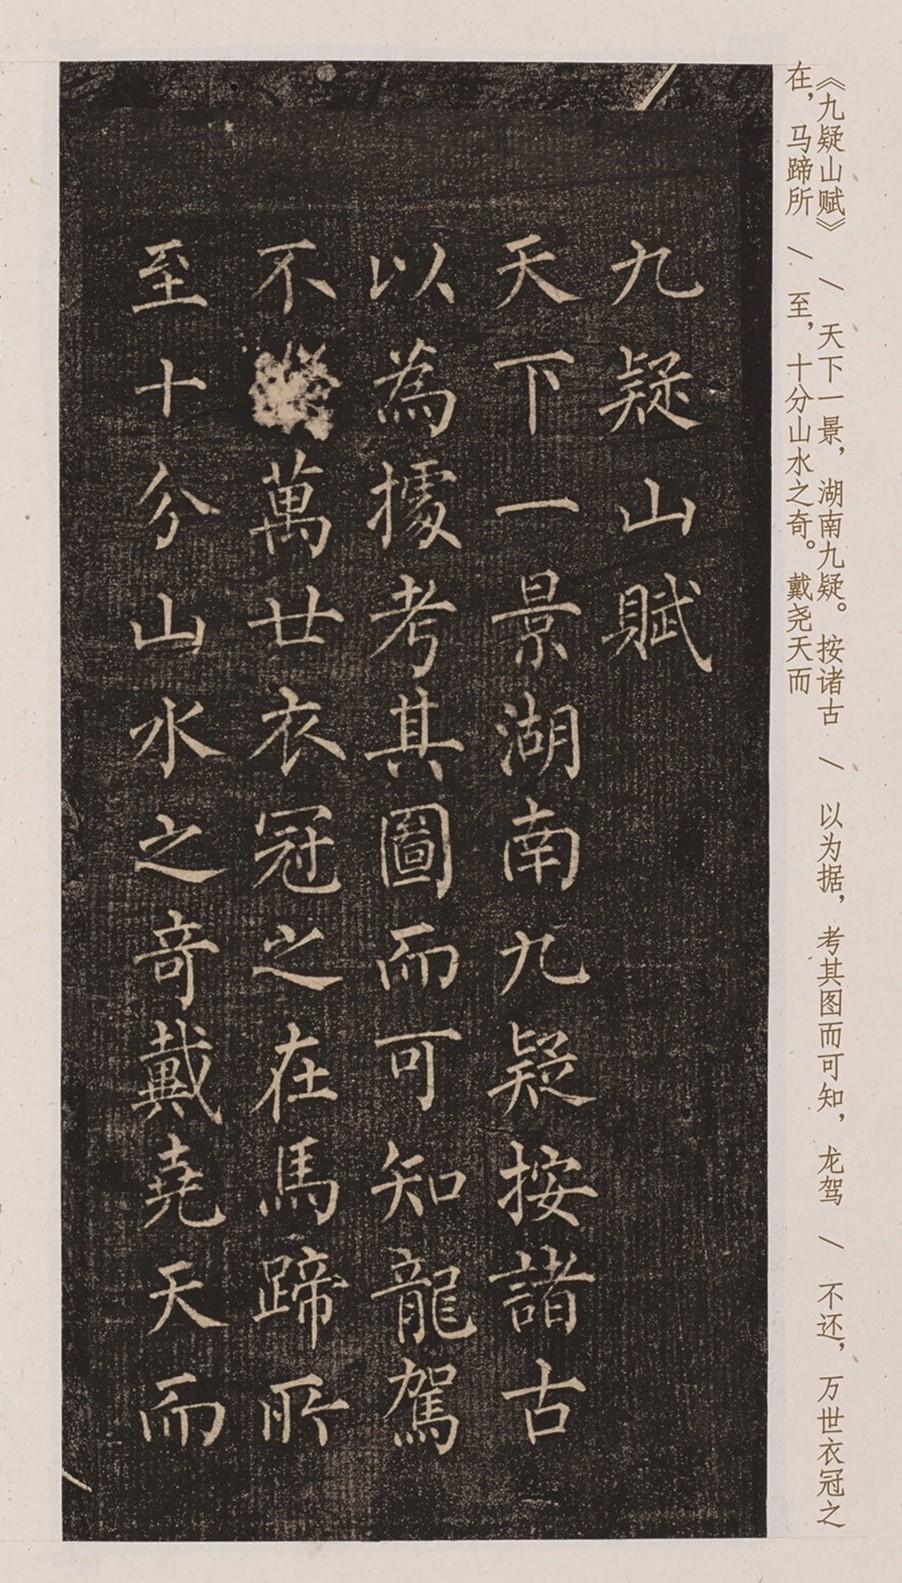 《九疑山赋》 / 天下一景，湖南九疑。按诸古 / 以为据，考其图而可知，龙驾 / 不还，万世衣冠之
在，马蹄所 / 至，十分山水之奇。戴尧天而
九疑山賦
天下一景湖南九疑按諸古
以為據考其圖而可知龍駕
不萬廿衣冠之在馬蹄所
至十分山水之奇戴堯天而